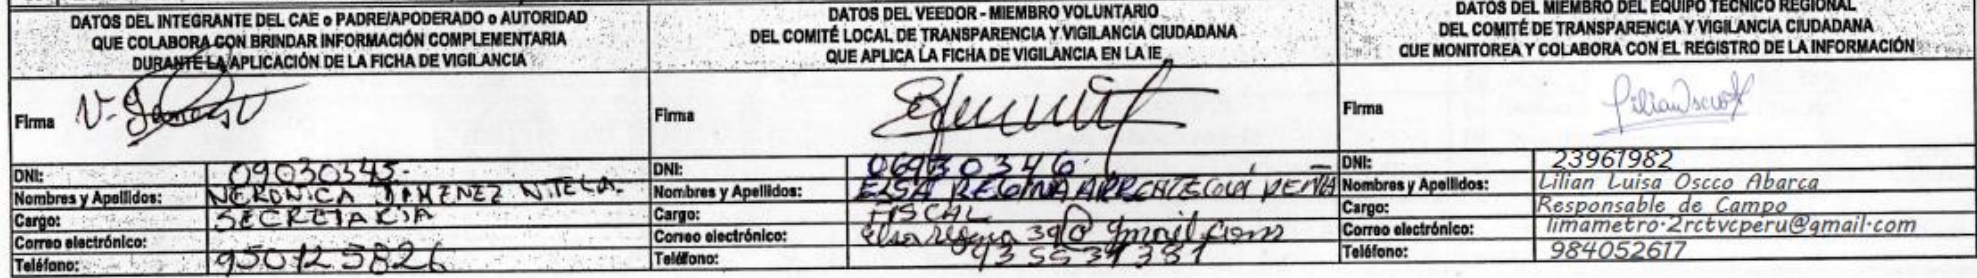 DATOS DEL INTEGRANTE DEL CAE o PADRE/APODERADO o AUTORIDAD
QUE COLABORA CON BRINDAR INFORMACIÓN COMPLEMENTARIA
DURANTE LA APLICACIÓN DE LA FICHA DE VIGILANCIA
Firma
DNI: 09030545
Nombres y Apellidos:
Cargo: SECRETARIA
Correo electrónico:
Teléfono: 950125826
DATOS DEL VEEDOR - MIEMBRO VOLUNTARIO
DEL COMITÉ LOCAL DE TRANSPARENCIA Y VIGILANCIA CIUDADANA
QUE APLICA LA FICHA DE VIGILANCIA EN LA IE
Firma
DNI:
Nombres y Apellidos: ELSA REGINA PEÑA
Cargo: FISCAL
Correo electrónico:
Teléfono:
DATOS DEL MIEMBRO DEL EQUIPO TÉCNICO REGIONAL
DEL COMITÉ DE TRANSPARENCIA Y VIGILANCIA CIUDADANA
QUE MONITOREA Y COLABORA CON EL REGISTRO DE LA INFORMACIÓN
Firma
DNI: 23961982
Nombres y Apellidos: Lilian Luisa Oscco Abarca
Cargo: Responsable de Campo
Correo electrónico: limametro.2rctvcperu@gmail.com
Teléfono: 984052617